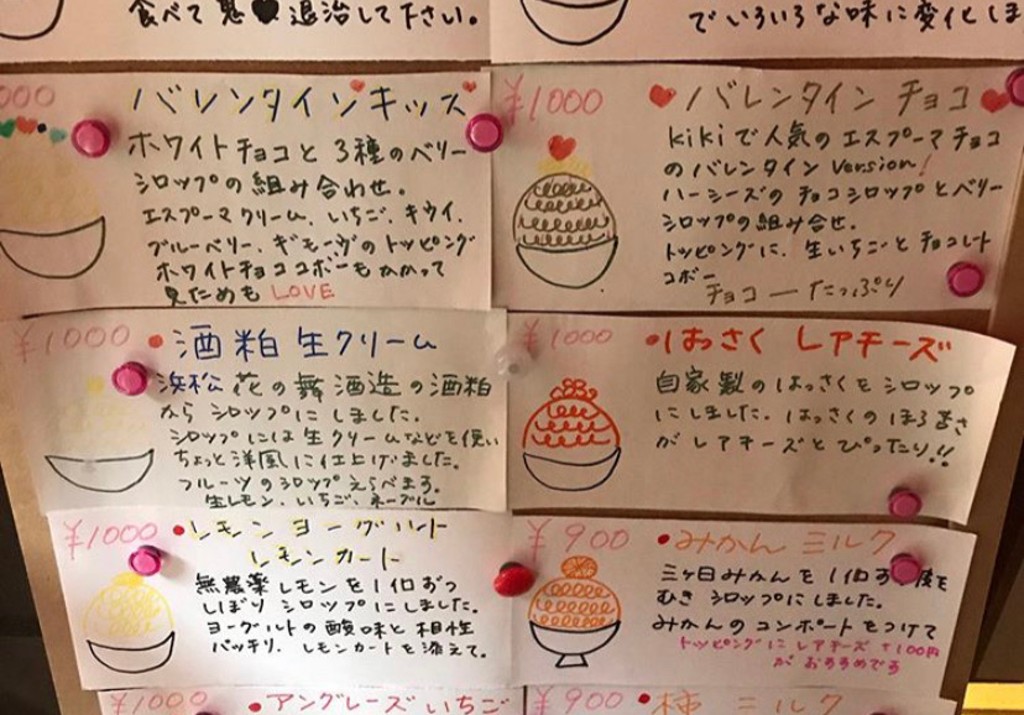 食べて鬼♥退治して下さい。
でいろいろな味に変化しま
000
バレンタインキッス
ホワイトチョコと3種のベリー
シロップの組み合わせ。
エスプーマクリーム、いちご、キウイ、
ブルーベリー、ギモーヴのトッピング
ホワイトチョココポーもかかって
見ためも LOVE
¥1000
バレンタイン チョコ
kikiで人気のエスプーマチョコ
のバレンタイン version!
ハーシーズのチョコシロップとベリー
シロップの組み合せ。
トッピングに、生いちごとチョコレート
コポー
チョコーたっぷり
¥1000
•酒粕生クリーム
浜松 花の舞酒造の酒粕
から シロップにしました。
シロップには生クリームなどを使い
ちょっと洋風に仕上げました。
フルーツのシロップえらべます。
生レモン、いちご、ネーブル
¥1000
•はっさく レアチーズ
自家製のはっさくをシロップ
にしました。はっさくのほろ苦さ
がレアチーズとぴったり!!
¥1000
•レモンヨーグルト
レモンカード
無農薬レモンを1個ずつ
しぼり シロップにしました。
ヨーグルトの酸味と相性
バッチリ、レモンカードを添えて。
¥900
•みかん ミルク
三ヶ日みかんを1個ず
むき シロップにしました。
みかんのコンポートをつけて
トッピングに レアチーズ +100円
が おすすめです
¥1000
•アングレーズいちご
¥900
•柿 ミルク